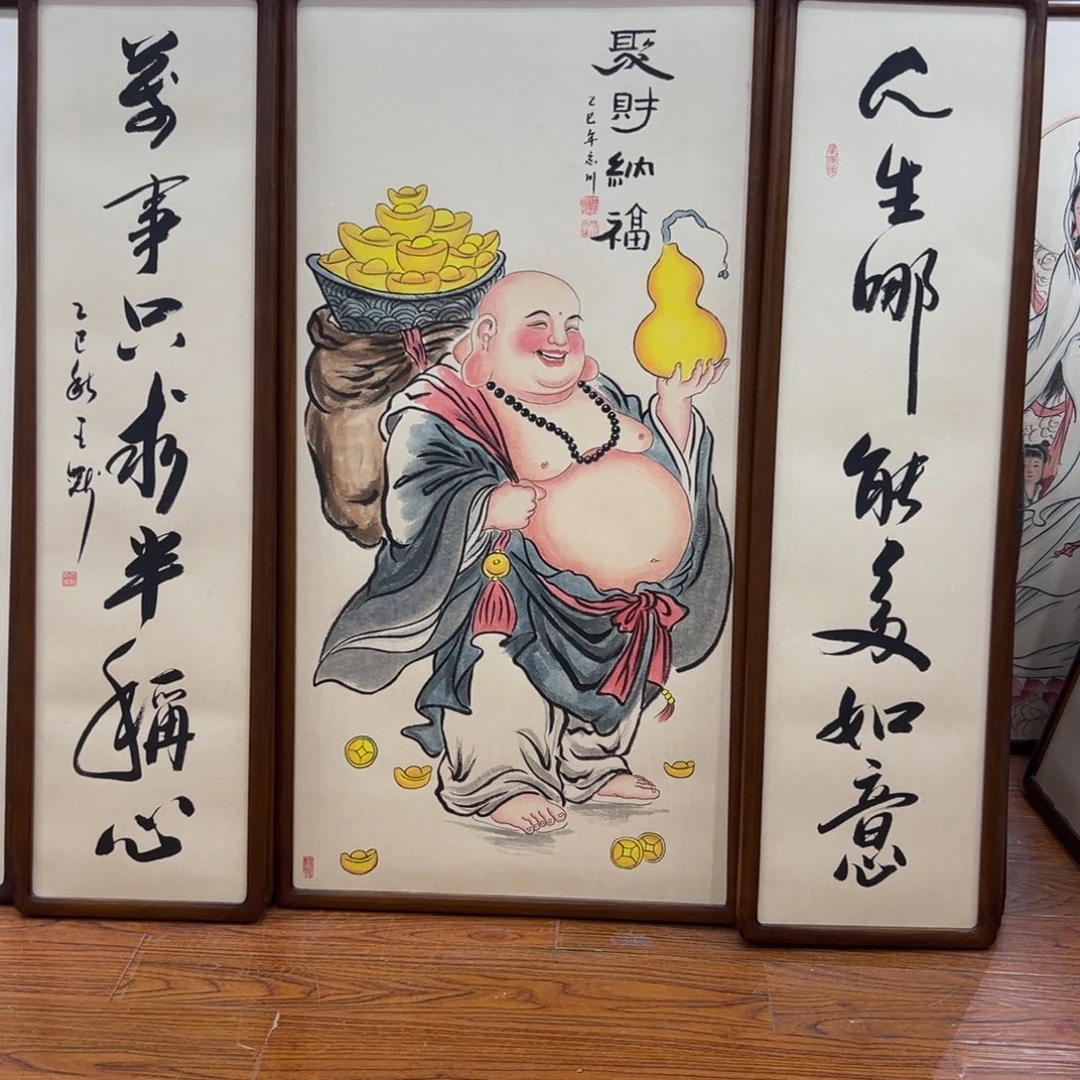 人生哪能多如意
聚財納福
乙巳年志川
萬事只求半稱心
乙巳秋王